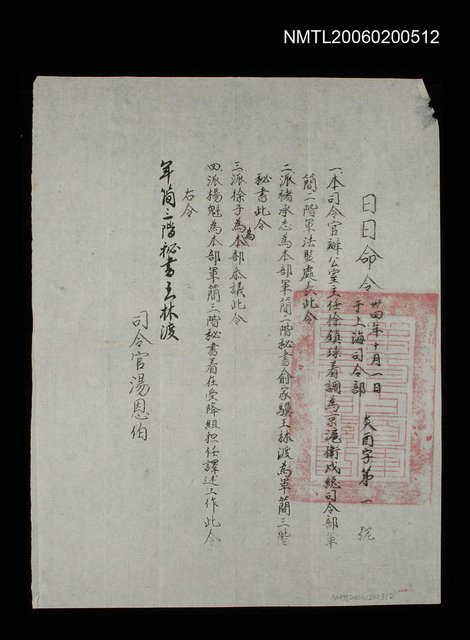 NMTL20060200512
日日命令 卅四年十月一日
于上海司令部 炎酉字第一號
一本司令官辦公室主任徐鎮球着調為京滬衛戍總司令部軍
簡二階軍法監處長此令
二派褚承志為本部軍簡二階秘書俞家駿王林渡為軍簡三階
秘書此令
三派徐子為為本部參議此令
四派楊魁為本部軍簡三階秘書着在受降組担任譯述工作此令
右令
軍簡三階秘書王林渡
司令官湯恩伯
NMTL20060200512